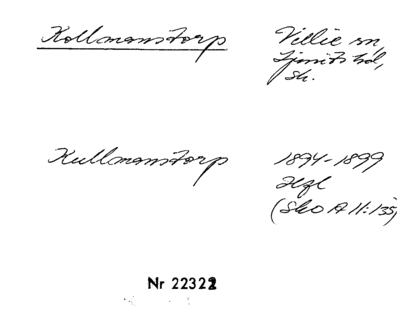 Kollmanstorp
Villie sn,
Ljunits hd,
Sk.
Kullmanstorp
1894-1899
Hfl
(SkO A 11:135)
Nr 22322